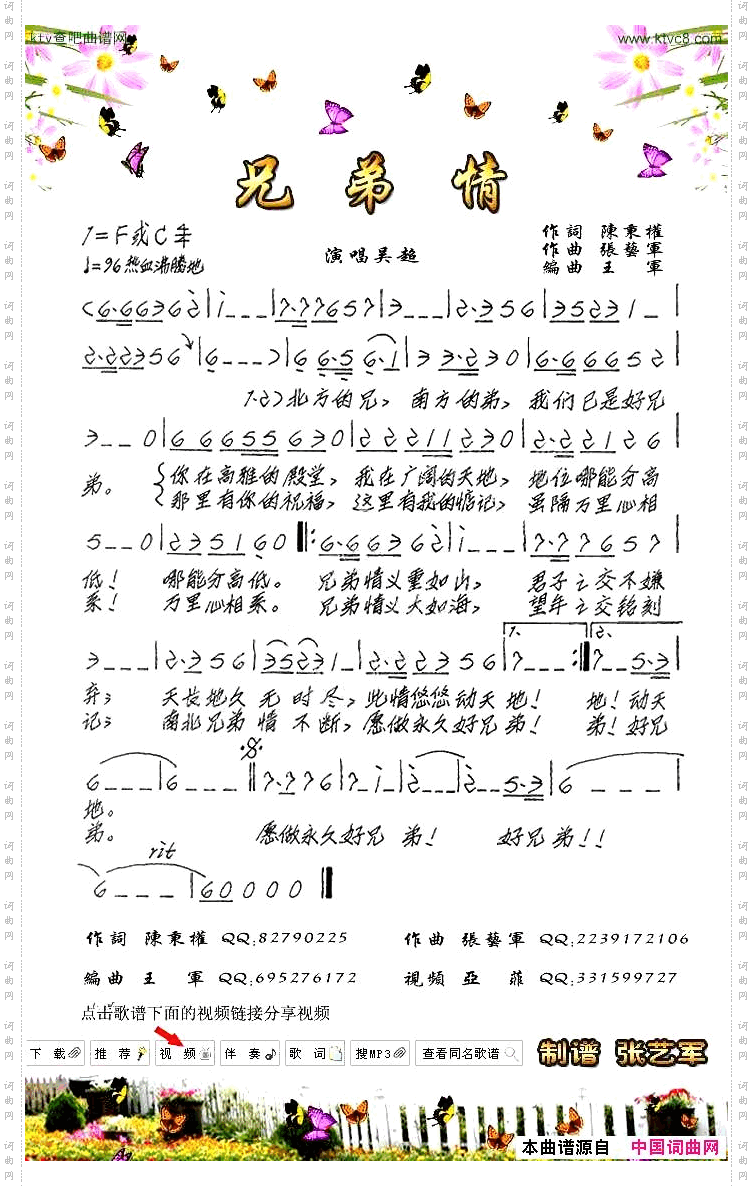 ktv查吧曲谱网
www.ktvc8.com
兄弟情
1=F或C 4/4
♩=96 热血沸腾地
演唱吴超
作詞 陳秉權
作曲 張藝軍
編曲 王 軍
1.2)北方的兄, 南方的弟, 我们已是好兄
弟。 你在高雅的殿堂, 我在广阔的天地, 地位哪能分高
那里有你的祝福, 这里有我的惦记, 虽隔万里心相
低! 哪能分高低。 兄弟情义重如山, 君子之交不嫌
系! 万里心相系。 兄弟情义大如海, 望年之交铭刻
1. 2.
弃; 天长地久 无 时 尽, 此情悠悠动天 地! 地!动天
记; 南北兄弟 情 不 断, 愿做永久好兄 弟! 弟!好兄
地。
弟。 愿做永久好兄 弟! 好兄 弟!!
rit
作詞 陳秉權 QQ:82790225
作曲 張藝軍 QQ:2239172106
編曲 王 軍 QQ:695276172
視頻 亞 菲 QQ:331599727
点击歌谱下面的视频链接分享视频
下 载
推 荐
视 频
伴 奏
歌 词
搜MP3
查看同名歌谱
制谱 张艺军
本曲谱源自 中国词曲网